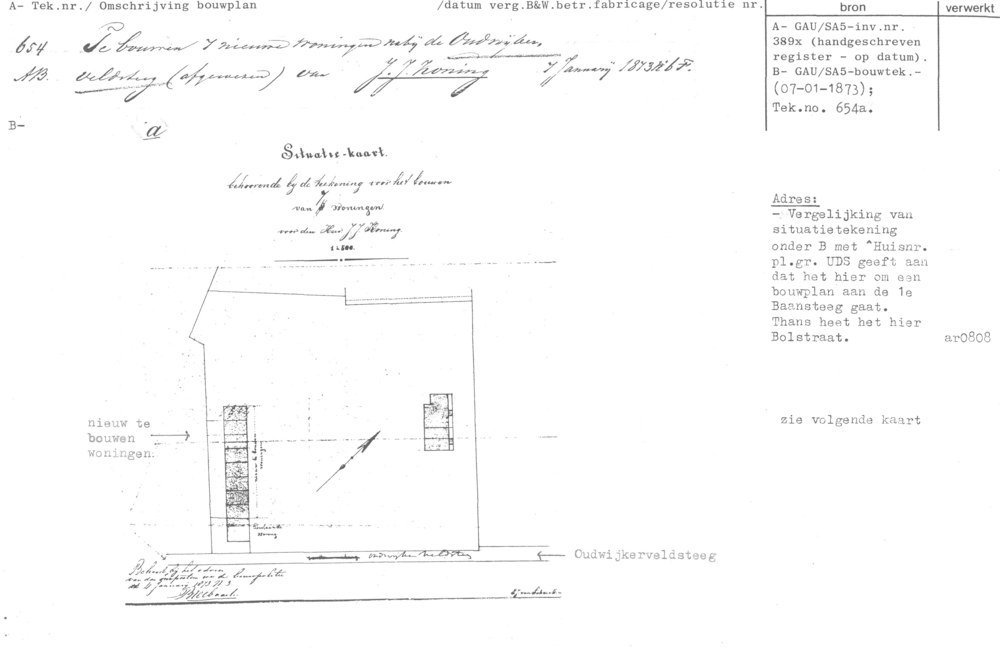 A- Tek.nr./ Omschrijving bouwplan /datum verg.B&W.betr.fabricage/resolutie nr. bron verwerkt
654 Te bouwen 7 nieuwe woningen nabij de Oudwijker
AB. veldsteeg (afgewezen) van J. J. Koning 7 January 1873 No 6 F.
A- GAU/SA5-inv.nr.
389x (handgeschreven
register - op datum).
B- GAU/SA5-bouwtek.-
(07-01-1873);
Tek.no. 654a.
B- a
Situatie-kaart.
behoorende bij de teekening voor het bouwen
van 7 Woningen
voor den Heer J J Koning.
1 à 500.
Adres:
- Vergelijking van
situatietekening
onder B met ^Huisnr.
pl.gr. UDS geeft aan
dat het hier om een
bouwplan aan de 1e
Baansteeg gaat.
Thans heet het hier
Bolstraat. ar0808
zie volgende kaart
nieuw te
bouwen
woningen.
nieuw te bouwen
woningen
woning
Oudwijker Veldsteeg
Oudwijkerveldsteeg
Behoort bij het adres
van den
4 January 1873 N 3